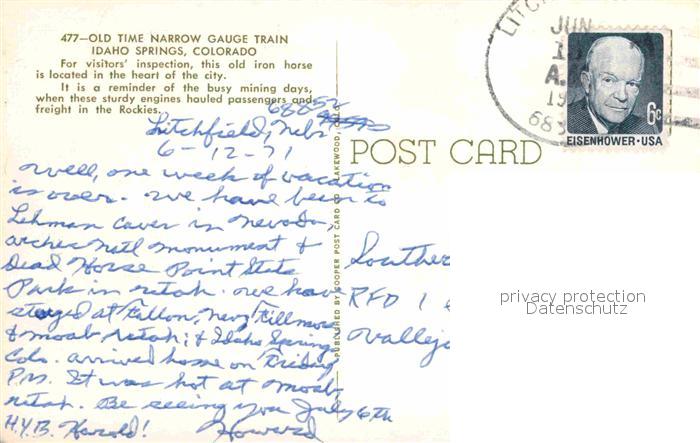 477—OLD TIME NARROW GAUGE TRAIN
IDAHO SPRINGS, COLORADO
For visitors' inspection, this old iron horse
is located in the heart of the city.
It is a reminder of the busy mining days,
when these sturdy engines hauled passengers and
freight in the Rockies.
68852
Litchfield, Nebr
6-12-71
Well, one week of vacation
is over. We have been to
Lehman Caves in Nevada,
Arches Natl Monument &
Dead Horse Point State
Park in Utah. We have
stayed at Fallon, Nev, Fillmore
& Moab, Utah; & Idaho Springs
Colo. Arrived home on Friday
P.M. It was hot at Moab,
Utah. Be seeing you July 6th
H.Y.B. Harold! Howard
PUBLISHED BY COOPER POST CARD CO. LAKEWOOD,
POST CARD
LITC
JUN
A.
19
68
6c
EISENHOWER·USA
Souther
RFD 1
Vallejo
privacy protection
Datenschutz